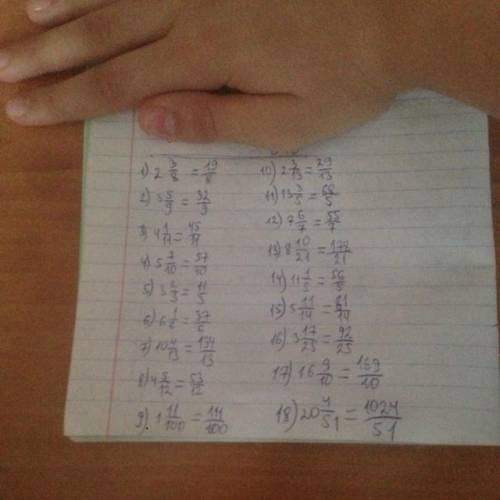 1) 2 3/8 = 19/8
2) 3 5/9 = 32/9
3) 4 1/11 = 45/11
4) 5 7/10 = 57/10
5) 3 2/3 = 11/3
6) 6 1/6 = 37/6
7) 10 4/13 = 134/13
8) 4 5/12 = 53/12
9) 1 11/100 = 111/100
10) 2 3/13 = 29/13
11) 13 3/5 = 68/5
12) 7 6/7 = 55/7
13) 8 10/21 = 178/21
14) 11 1/5 = 56/5
15) 5 11/14 = 81/14
16) 3 17/25 = 92/25
17) 16 9/10 = 169/10
18) 20 4/51 = 1024/51